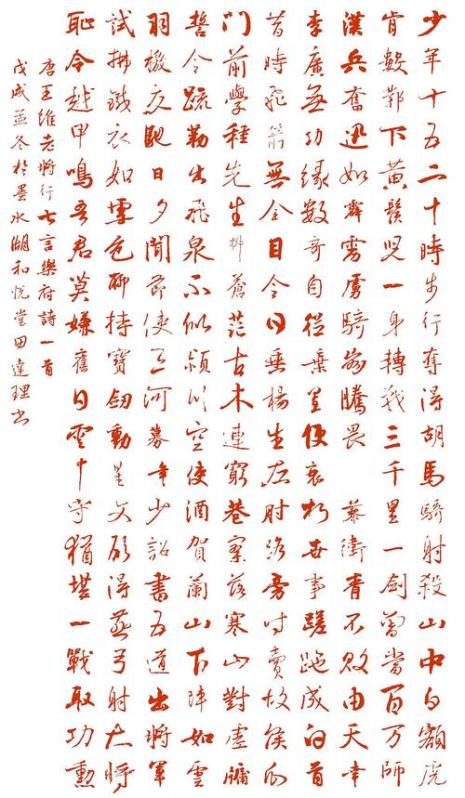 少年十五二十時步行奪得胡馬騎射殺山中白額虎
肯數鄴下黃鬚兒一身轉戰三千里一劍曾當百万師
漢兵奮迅如霹靂虜騎崩騰畏蒺衛青不敗由天幸
李廣無功緣數奇自從棄置便衰朽世事蹉跎成白首
昔時飛箭無全目今日垂楊生左肘路旁時賣故侯瓜
門前學種先生柳蒼茫古木連窮巷寥落寒山對虛牖
誓令疏勒出飛泉不似潁川空使酒賀蘭山下陣如雲
羽檄交馳日夕聞節使三河募年少詔書五道出將軍
試拂鐵衣如雪色聊持寶劍動星文願得燕弓射大將
恥令越甲鳴吾君莫嫌舊日雲中守猶堪一戰取功勳
唐王維老將行七言樂府詩一首
戊戌孟冬於墨水湖和悅堂田達理書